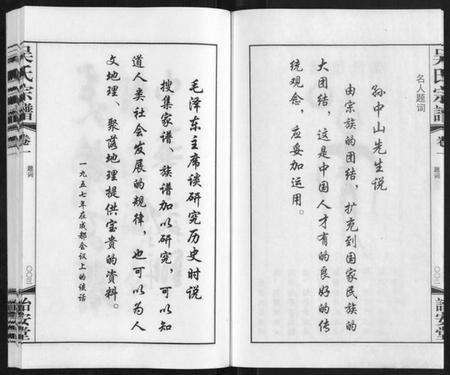 吴氏宗谱
卷一
名人题词
诒安堂
孙中山先生说
由宗族的团结，扩充到国家民族的
大团结，这是中国人才有的良好的传
统观念，应妥加运用。
毛泽东主席谈研究历史时说
搜集家谱、族谱加以研究，可以知
道人类社会发展的规律，也可以为人
文地理、聚落地理提供宝贵的资料。
一九五七年在成都会议上的谈话
吴氏宗谱
卷一
题词
诒安堂